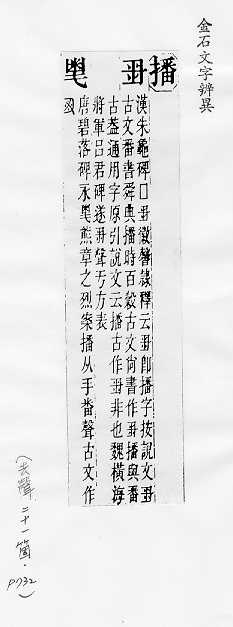 金石文字辨異
播
漢朱龜碑囗徽聲隸釋云即播字按說文
古文番書舜典播時百穀古文尚書作播與番
古葢通用字原引說文云播古作非也魏橫海
將軍呂君碑遂聲丂方表
唐碧落碑永熊章之烈案播从手番聲古文作
(去聲 二十一箇. p732)